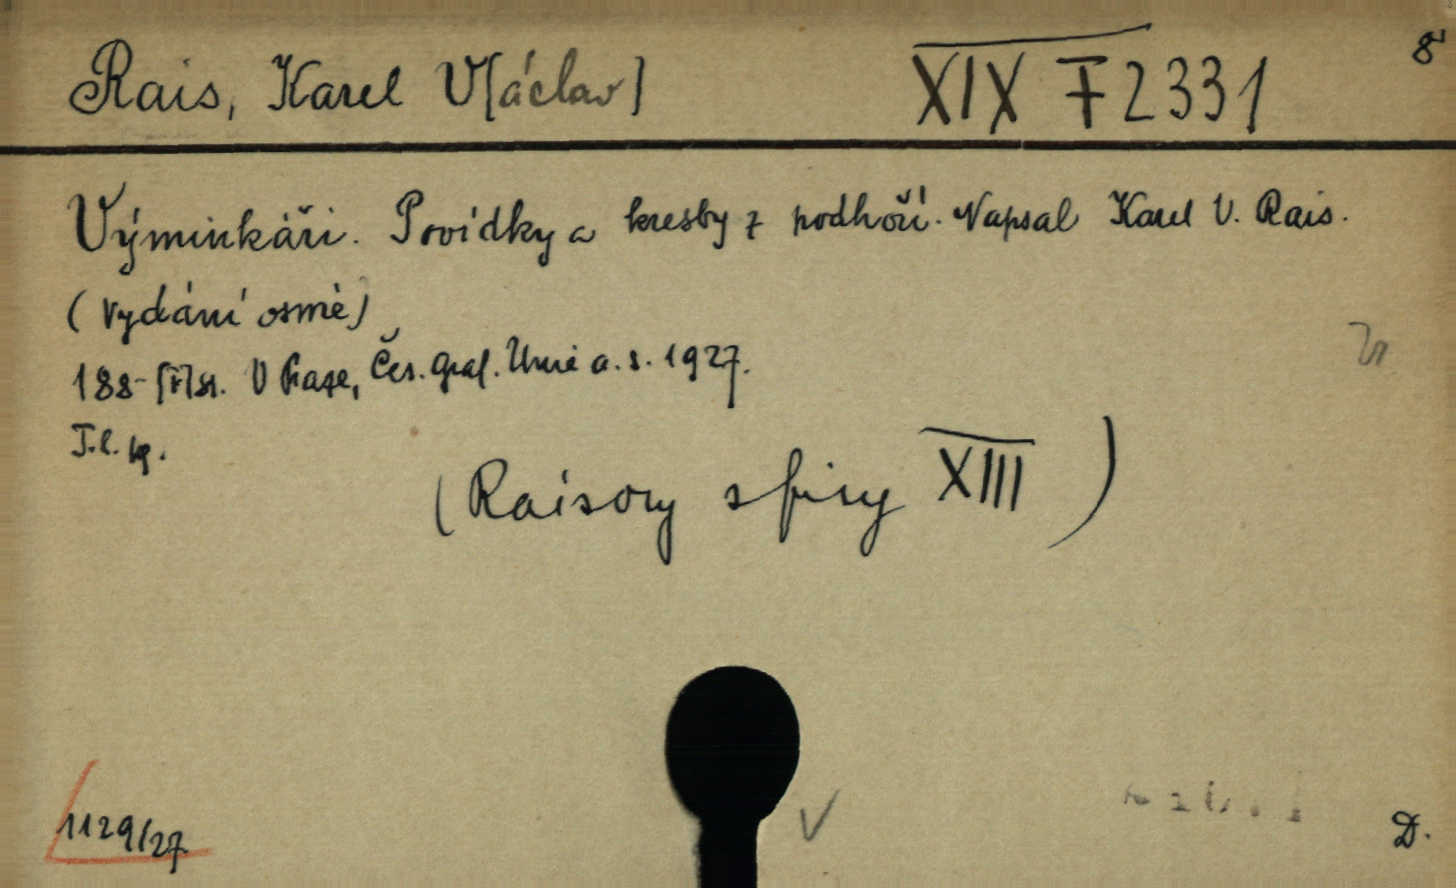 Rais, Karel V[áclav] XIX F 2331 8°
Výminkáři. Povídky a kresby z podhoří. Napsal Karel V. Rais.
(Vydání osmé)
188-[I] str. V Praze, Čes. Graf. Unie a. s. 1927.
T. l. kp.
(Raisovy spisy XIII)
1129/27
D.